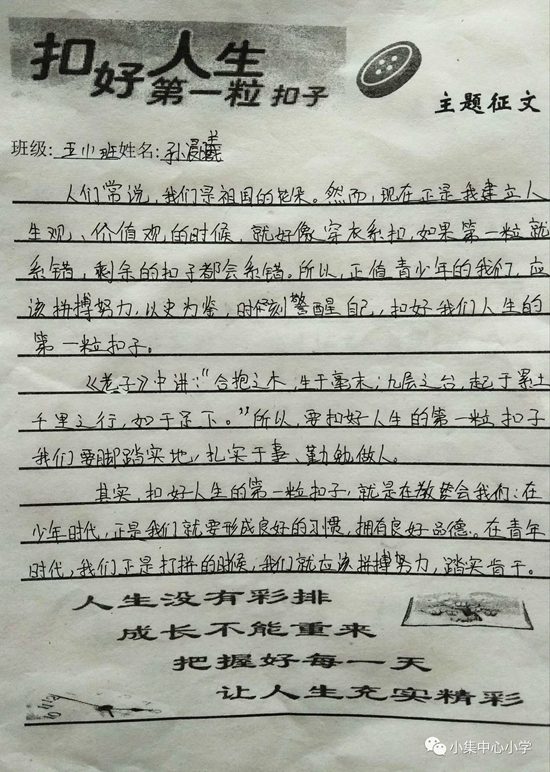 扣好人生
第一粒扣子
主题征文
班级: 五(1)班姓名: 孙浸曦
人们常说,我们是祖国的花朵。然而,现在正是我建立人
生观、价值观的时候,就好像穿衣系扣,如果第一粒就
系错,剩余的扣子都会系错。所以,正值青少年的我们,应
该拼搏努力,以史为鉴,时刻警醒自己,扣好我们人生的
第一粒扣子。
《老子》中讲:“合抱之木,生于毫末;九层之台,起于累土
千里之行,始于足下。”所以,要扣好人生的第一粒扣子
我们要脚踏实地,扎实干事、勤勉做人。
其实,扣好人生的第一粒扣子,就是在教我们:在
少年时代,正是我们就要形成良好的习惯,拥有良好品德。在青年
时代,我们正是打拼的时候,我们就应该拼搏努力,踏实肯干。
人生没有彩排
成长不能重来
把握好每一天
让人生充实精彩
小集中心小学